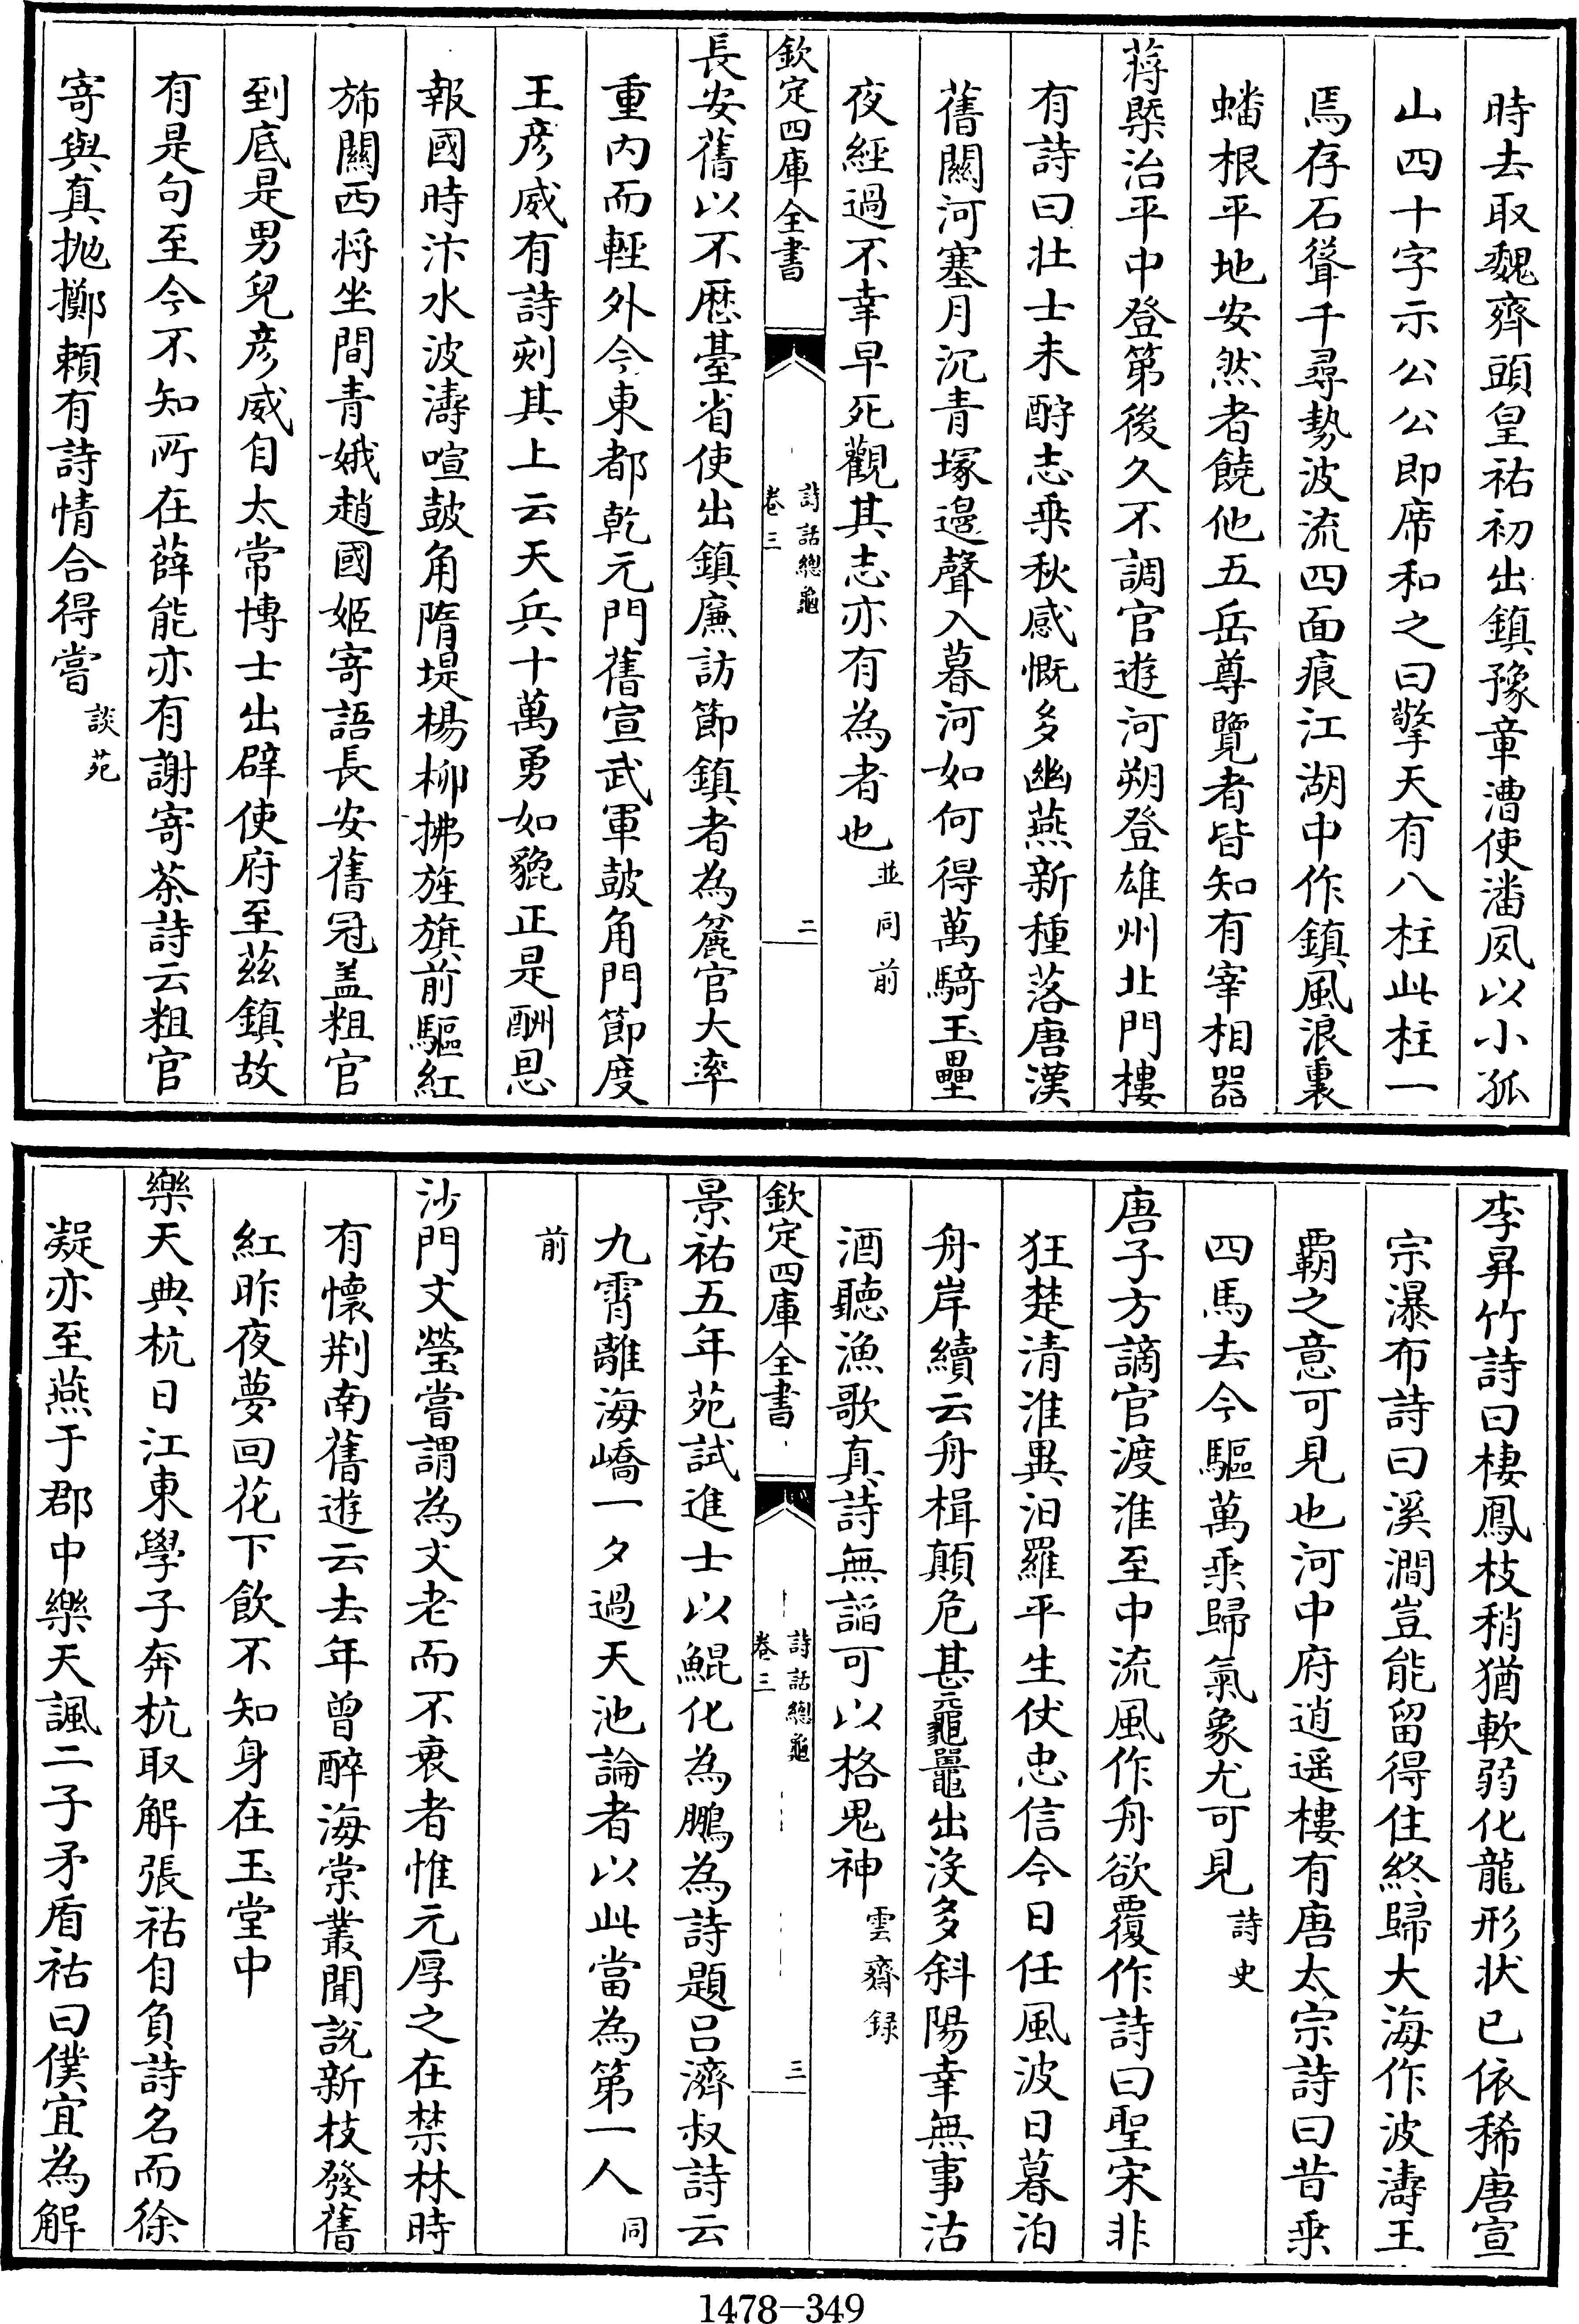 時去取魏齊頭皇祐初出鎮豫章漕使潘夙以小孤
山四十字示公公即席和之曰擎天有八柱此柱一
焉存石聳千尋勢波流四面痕江湖中作鎮風浪裏
蟠根平地安然者饒他五岳尊覽者皆知有宰相器
蔣槩治平中登第後久不調官遊河朔登雄州北門樓
有詩曰壯士未酧志乗秋感慨多幽燕新種落唐漢
舊關河塞月沉青塚邉聲入暮河如何得萬騎玉壘
夜經過不幸早死觀其志亦有為者也並同前
欽定四庫全書
詩話總龜
卷三
二
長安舊以不厯臺省使出鎮廉訪節鎮者為麄官大率
重内而輕外今東都乾元門舊宣武軍鼓角門節度
王彦威有詩刻其上云天兵十萬勇如貔正是酬恩
報國時汴水波濤喧鼓角隋堤楊柳拂旌旗前驅紅
旆關西将坐間青娥趙國姬寄語長安舊冠盖粗官
到底是男兒彦威自太常博士出辟使府至兹鎮故
有是句至今不知所在薛能亦有謝寄茶詩云粗官
寄與真抛擲頼有詩情合得嘗談苑
李昇竹詩曰棲鳳枝稍猶軟弱化龍形状已依稀唐宣
宗瀑布詩曰溪澗豈能留得住終歸大海作波濤王
覇之意可見也河中府逍遥樓有唐太宗詩曰昔乗
四馬去今驅萬乘歸氣象尤可見詩史
唐子方謫官渡淮至中流風作舟欲覆作詩曰聖宋非
狂楚清淮異汨羅平生仗忠信今日任風波日暮泊
舟岸續云舟楫顛危甚黿鼉出没多斜陽幸無事沽
酒聽漁歌真詩無謟可以格鬼神雲齋録
欽定四庫全書
詩話總龜
卷三
三
景祐五年苑試進士以鯤化為鵬為詩題吕濟叔詩云
九霄離海嶠一夕過天池論者以此當為第一人同
前
沙門文瑩嘗謂為文老而不衰者惟元厚之在禁林時
有懐荆南舊遊云去年曽醉海棠叢聞說新枝發舊
紅昨夜夢回花下飲不知身在玉堂中
樂天典杭日江東學子奔杭取解張祜自負詩名而徐
凝亦至燕于郡中樂天諷二子矛盾祜曰僕宜為解
1478-349